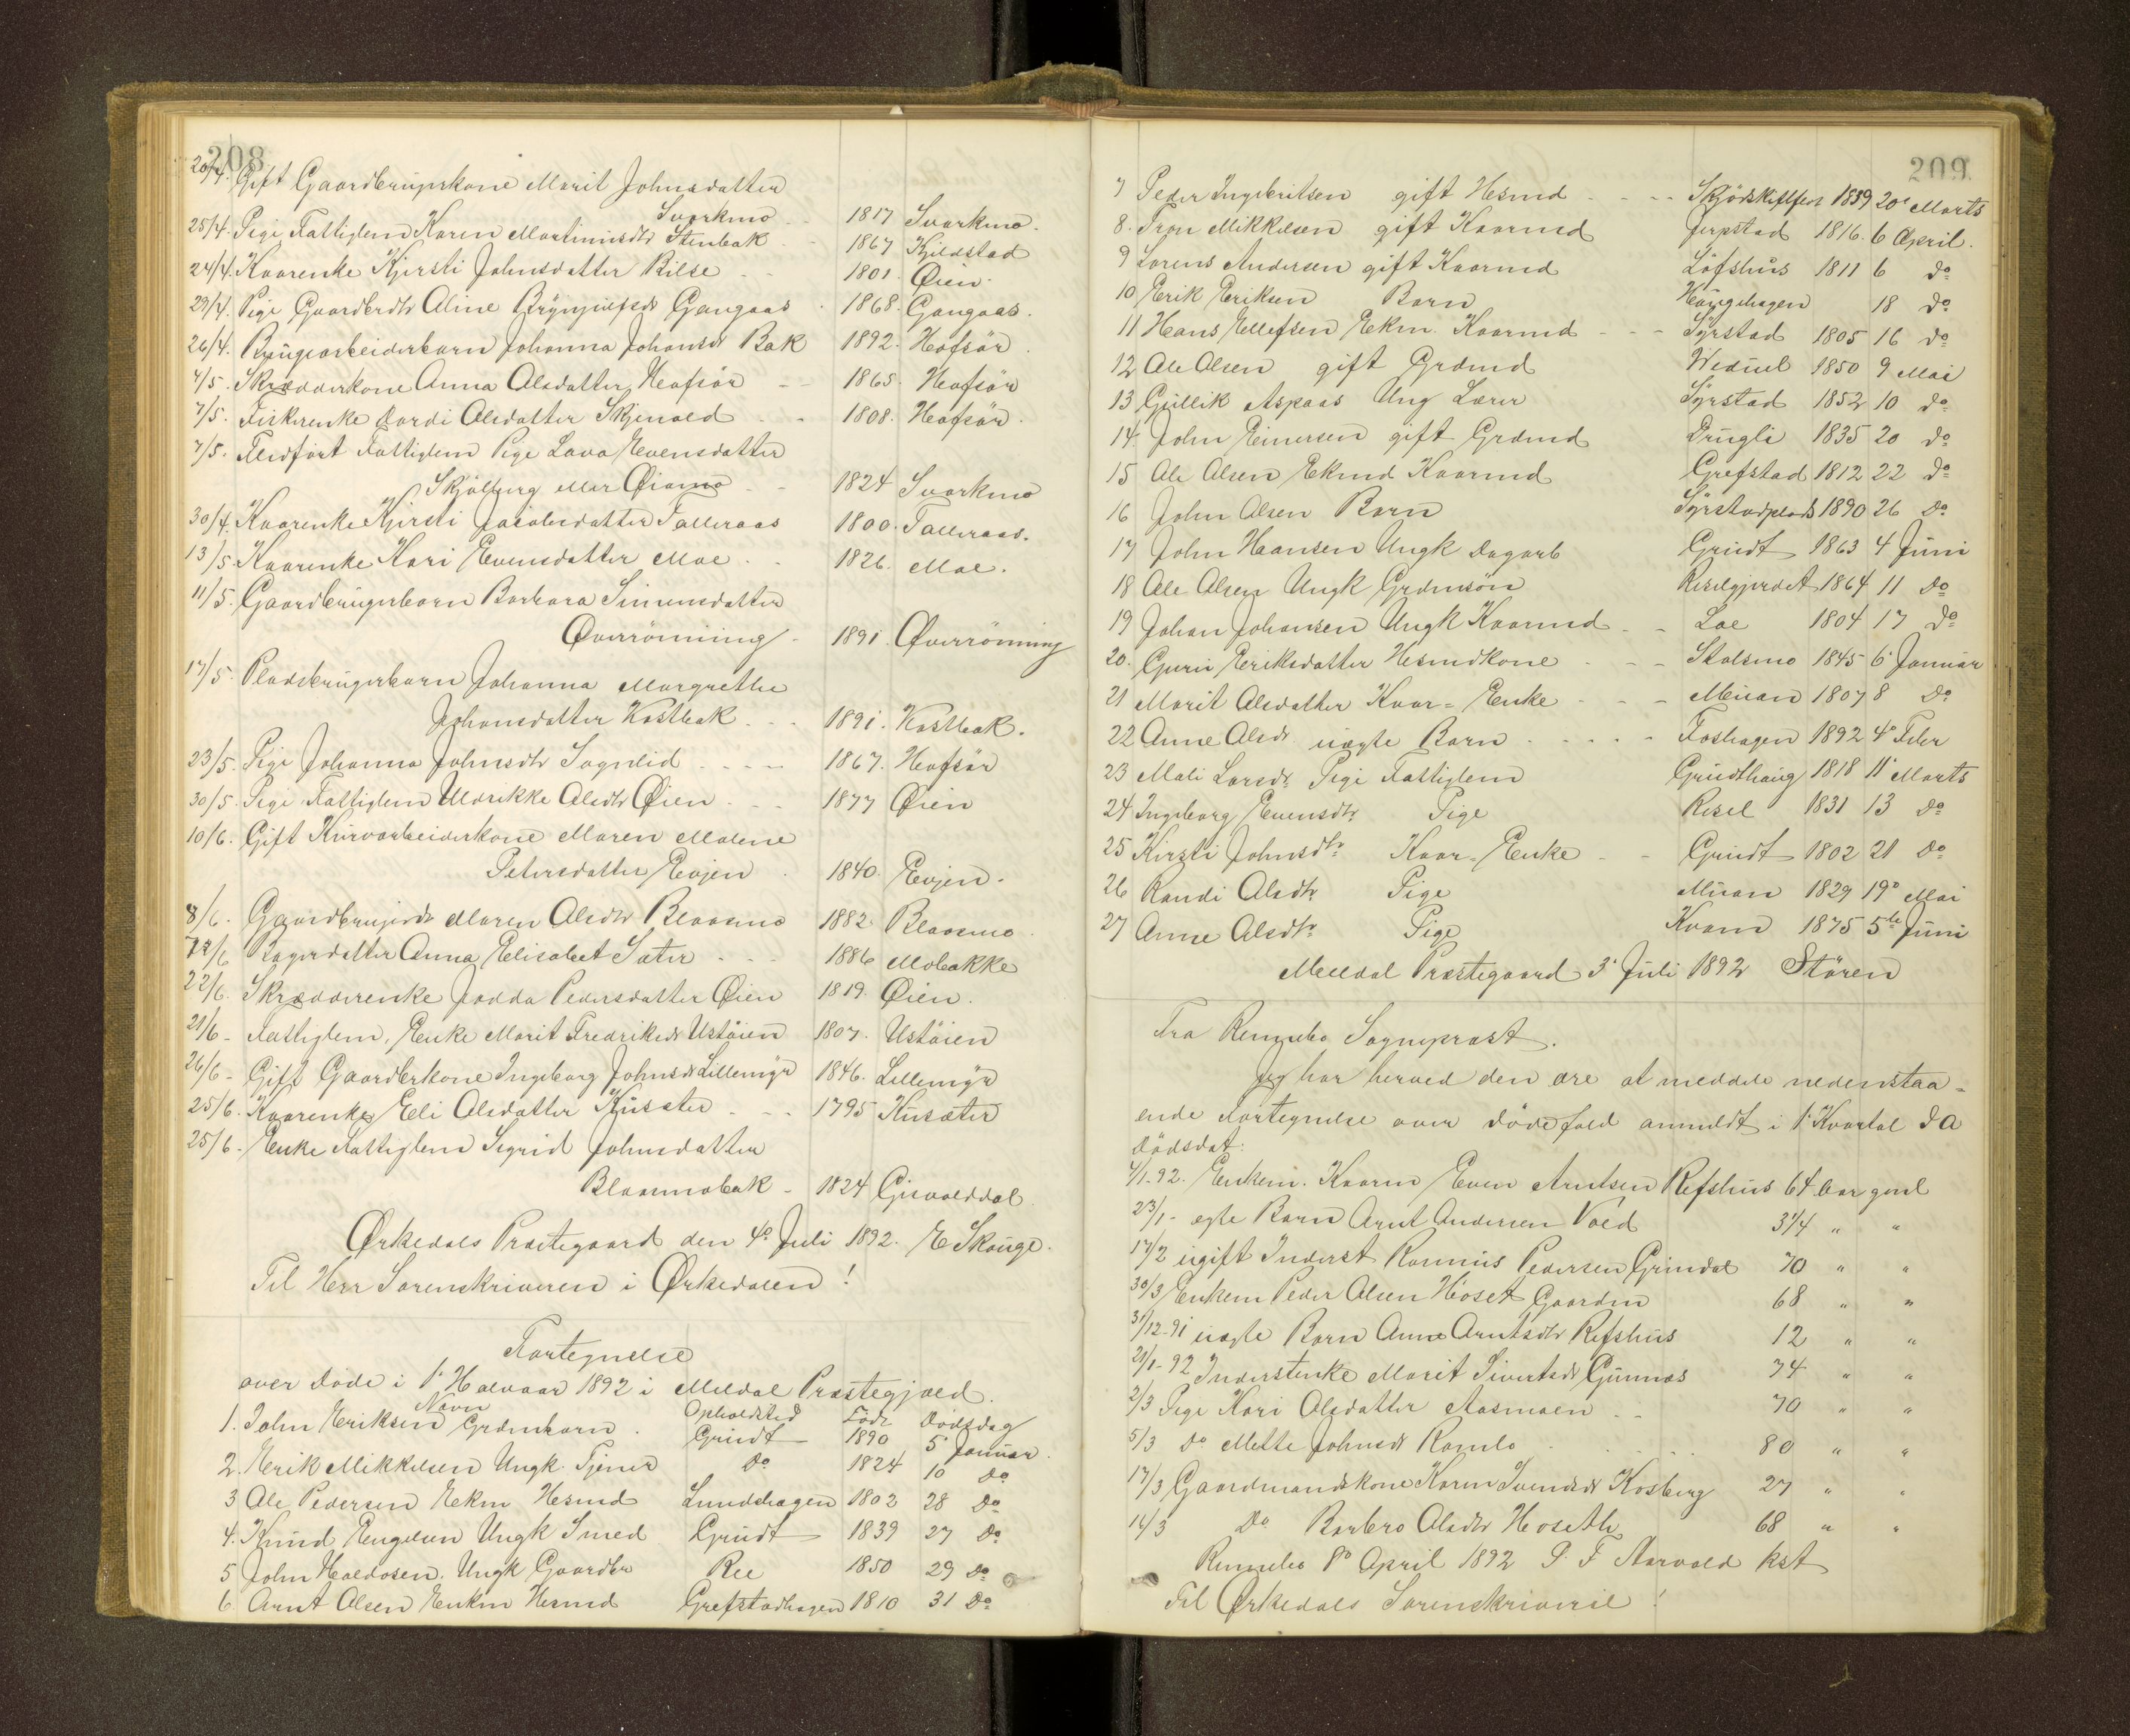 208
20/4. Gift Gaardbrugerkone Marit Johnsdatter
Svorkmo - 1817 Svorkmo.
25/4. Pige Fattiglem Karen Martinusdtr Stenbak - 1867 Kjeldstad
24/4. Kaarenke Kjersti Johnsdatter Bilse - - 1801. Øien.
29/4. Pige Gaardbrdtr Aline Brynjulfsdr Gangaas - 1868. Gangaas.
26/4. Brugsarbeiderbarn Johanna Johansdr Bak 1892. Hofsör.
4/5. Skrædderkone Anna Olsdatter Hofsör - - 1865. Hofsör
7/5. Fiskerenke Gordi Olsdatter Skjenald - - 1808. Hofsör.
7/5. Fledført Fattiglem Pige Lava Evensdatter
Skjölberg eller Øiamo - - 1824 Svorkmo
30/4. Kaarenke Kjersti Jacobsdatter Talleraas 1800. Talleraas.
13/5. Kaarenke Kari Evensdatter Moe - - 1826. Moe.
11/5. Gaardbrugerbarn Barbara Simensdatter
Øverrönning - 1891. Øverrönning
17/5. Pladsbrugerbarn Johanna Margrethe
Johansdatter Kastbak. - - 1891. Kastbak.
23/5. Pige Johanna Johnsdtr Sognlid - - - - 1867. Hofsör
30/5. Pige Fattiglem Marikke Olsdtr Øien - - - 1877 Øien
10/6. Gift Kurvarbeiderkone Maren Malene
Petersdatter Evjen - 1840. Evjen.
8/6. Gaardbrugerdr Maren Olsdtr Blaasmo 1882. Blaasmo.
12/6 Bagerdatter Anna Elisabet Sæter - - - 1886 Mobakke
22/6. Skrædderenke Jodda Pedersdatter Øien 1819. Øien.
21/6 - Fattiglem, Enke Marit Fredriksdr Ustöien 1807. Ustöien
26/6 - Gift Gaardbrkone Ingeborg Johnsdr Lillemyr 1846. Lillemyr
25/6. Kaarenke Eli Olsdatter Kusæter - - - 1795 Kusæter
25/6 - Enke Fattiglem Sigrid Johnsdatter
Blaasmobak - 1824 Gisvolddal
Ørkedals Præstegaard den 4de Juli 1892. E Skauge.
Til Herr Sorenskriveren i Ørkedalen!
Fortegnelse
over døde i 1' Halvaar 1892 i Meldal Præstegjæld.
Navn Opholdsted Födt Dödsdag
1. John Eriksen Grdmbarn. Grindt 1890 5' Januar.
2. Erik Mikkelsen Ungk. Tjener Do 1824 10 Do
3 Ole Pedersen Enkm Hesmd Lundehagen 1802 28 Do
4. Knud Engelsen Ungk Smed Grindt 1839 27 Do.
5 John Haldosen. Ungk Gaardbr Ree 1850 29 Do
6 Arnt Olsen Enkm Hesmd Grefstadhagen 1810 31 Do
209.
7 Peder Ingebritsen gift Hesmd - - - - 1889 20de Marts
8. Tron Mikkelsen gift Kaarmd Jerpstad 1816. 6 April.
9 Lorens Andersen gift Kaarmd Löfshus 1811 6 do
10 Erik Eriksen Barn Haugehagen 18 do
11 Hans Ellefsen Ekm. Kaarmd - - - Syrstad 1805 16 do
12 Ole Olsen gift Grdmd 1850 9 Mai
13 Gullik Aspaas Ung Lærer Syrstad 1852 10 do
14. John Einersen gift Grdmd Drugli 1835 20 do
15 Ole Olsen Ekmd Kaarmd Grefstad 1812 22 do
16 John Olsen Barn Syrstadplads 1890 26 do
17 John Haansen Ungk Dagarb Grindt 1863 4 Juni
18 Ole Olsen Ungk Grdmsön Reselgjerdet 1864 11 do
19 Johan Johansen Ungk Kaarmd - - Loe 1804 17 do
20. Guru Eriksdatter Hesmdkone - - - Stolsmo 1845 6' Januar
21 Marit Olsdatter Kaar = Enke - - - Muan 1807 8 do
22 Anne Olsdr uægte Barn - - - - - Foshagen 1892 4de Febr
23 Mali Larsdr. Pige Fattiglem Grindthaug 1818 11' Marts
24 Ingeborg Evensdtr. Pige Resel 1831 13 do
25 Kirsti Johnsdtr. Kaar = Enke - - Grindt 1802 21 do
26 Randi Olsdtr. Pige Muan 1829 19de Mai
27 Anne Olsdtr. Pige Kvam 1875 5te Juni
Meldal Præstegaard 3' Juli 1892 Stören
Fra Rennebo Sogneprest.
Jeg har herved den ære at meddele nedenstaa =
ende Fortegnelse over dödsfald anmeldt i 1' Kvartal D A
Dödsdat.
4/1-92. Enkem. Kaarm Even Arntsen Refshus 64 Aar gml
23/1 - ægte Barn Arnt Andersen Vold 3 1/4 " "
17/2 ugift Inderst Rasmus Pedersen Grindal 70 " "
30/3 Enkem Peder Olsen Hoset Gaardm 68 " "
31/12-91 uægte Barn Anne Arntsdtr Refshus 12 " "
21/1-92 Inderstenke Marit Sivertsdr Gunnæs 74 " "
2/3 Pige Kari Olsdatter Aasmoen - - 70 " "
5/3 Do Mette Johnsdr Ramlo - - - - 80 " "
17/3 Gaardmandskone Karen Svendsdr Kosberg 27 " "
14/3 Do Barbro Olsdtr Hoseth 68 " "
Rennebo 8de April 1892 P. F Aarvold kst
Til Ørkedals Sorenskriveril!